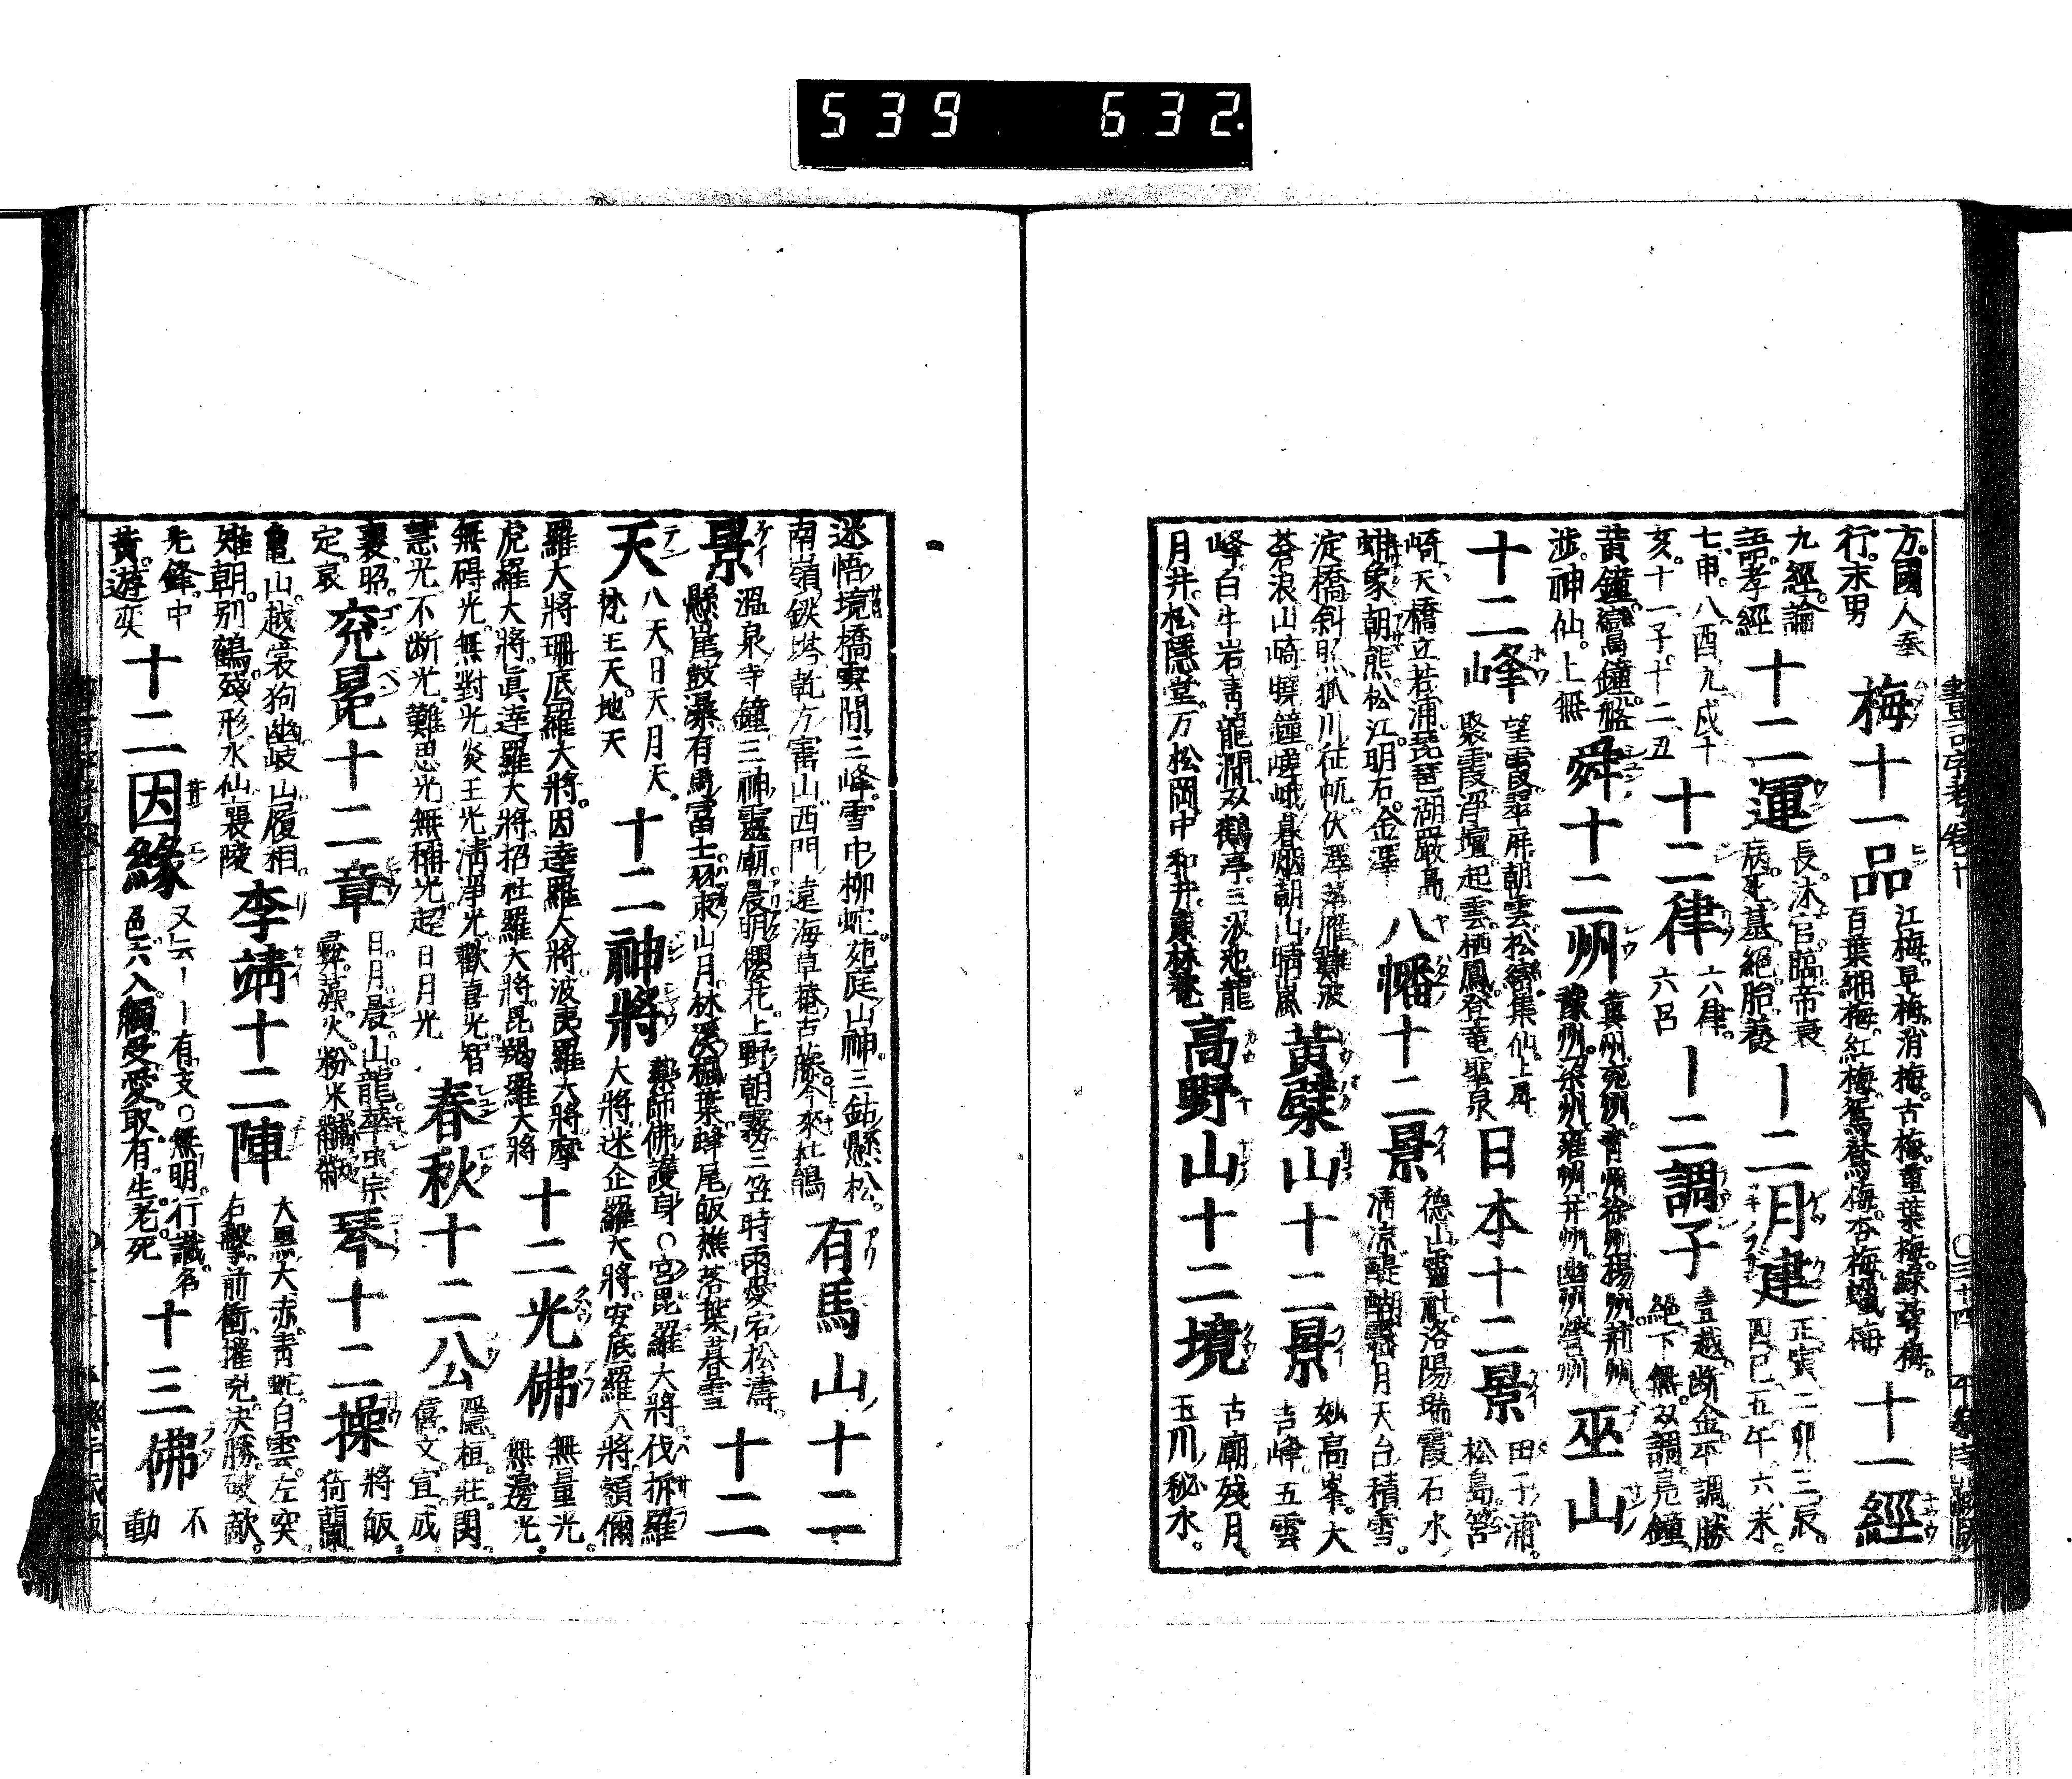 539 632.
方。國人奉
行。末男
梅十一品
江梅。早梅。消梅。古梅。重葉梅。綠萼梅。
百葉緗梅。紅梅。鴛鴦梅。杏梅。蠟梅
十一經
九經。論
語。孝經
十二運
長。沐。官。臨。帝。衰
病。死。墓。絕。胎。養
十二月建
正寅。二卯。三辰。
四巳。五午。六未。
七申。八酉。九戌。十
亥。十一子。十二丑
十二律
六律。
六呂
十二調子
壹越。斷金。平調。勝
絕。下無。双調。鳧鐘。
黃鐘。鸞鐘。盤
渉。神仙。上無
舜十二州
冀州。兗州。青州。徐州。楊州。荊州
豫州。梁州。雍州。幷州。幽州。營州
巫山
十二峰
望霞。翠屏。朝雲。松巒。集仙。上昇
聚霞。淨壇。起雲。栖鳳。登竜。聖泉
日本十二景
田子浦。
松島。筥
崎。天橋立。若浦。琵琶湖。嚴島
蚶象。朝熊。松江。明石。金澤
八幡十二景
德山靈社。洛陽瑞霞。石水
清涼。醍醐月。天台積雪。
淀橋斜照。狐川征帆。伏澤落雁。難波
蒼浪。山崎曉鐘。嵯峨暮烟。朝山晴嵐
黃檗山十二景
妙高峯。大
吉峰。五雲
峰。白牛岩。青龍澗。双鶴亭。三汲池。龍
月井。松隱堂。万松岡。中和井。東林菴
高野山十二境
古廟殘月。
玉川秘水。
迷悟境橋。雲間三峰。雪中柳。蛇苑庭。山神。三鈷懸松。
南嶺鉄塔。乾方富山。西門遠海。草菴古藤。今來杜鵑
有馬山十二
景
溫泉寺鐘。三神靈廟。晨明櫻花。上野朝霧。三笠時雨。愛宕松濤。
懸崖鼓瀑。有馬富士。羽束山月。林溪楓葉。峰尾皈樵。落葉暮雪
十二
天
八天。日天。月天。
梵王天。地天
十二神將
藥師佛護身○宮毘羅大將。伐折羅
大將。迷企羅大將。安底羅大將。頞儞
羅大將。珊底羅大將。因達羅大將。波夷羅大將。摩
虎羅大將。眞達羅大將。招杜羅大將。毘羯羅大將
十二光佛
無量光。
無邊光。
無碍光。無對光。炎王光。淸淨光。歡喜光。智
慧光。不断光。難思光。無稱光。超日月光
春秋十二公
隱。桓。莊。閔。
僖。文。宣。成
襄。昭。
定。哀
兗冕十二章
日。月。晨。山。龍。華虫。宗
彛。藻。火。粉米。黼。黻
琴十二操
將皈。
猗蘭。
龜山。越裳。狗幽。岐山。履相
雉朝。別鶴。殘形。水仙。襄陵
李靖十二陣
大黒。大赤。青蛇。白雲。左突。
右擊。前衝。摧兇。決勝。破敵。
先鋒。中
黃。遊奕
十二因緣
又云ーー有支○無明。行。識。名
色。六入。觸。受。愛。取。有。生。老死
十三佛
不
動